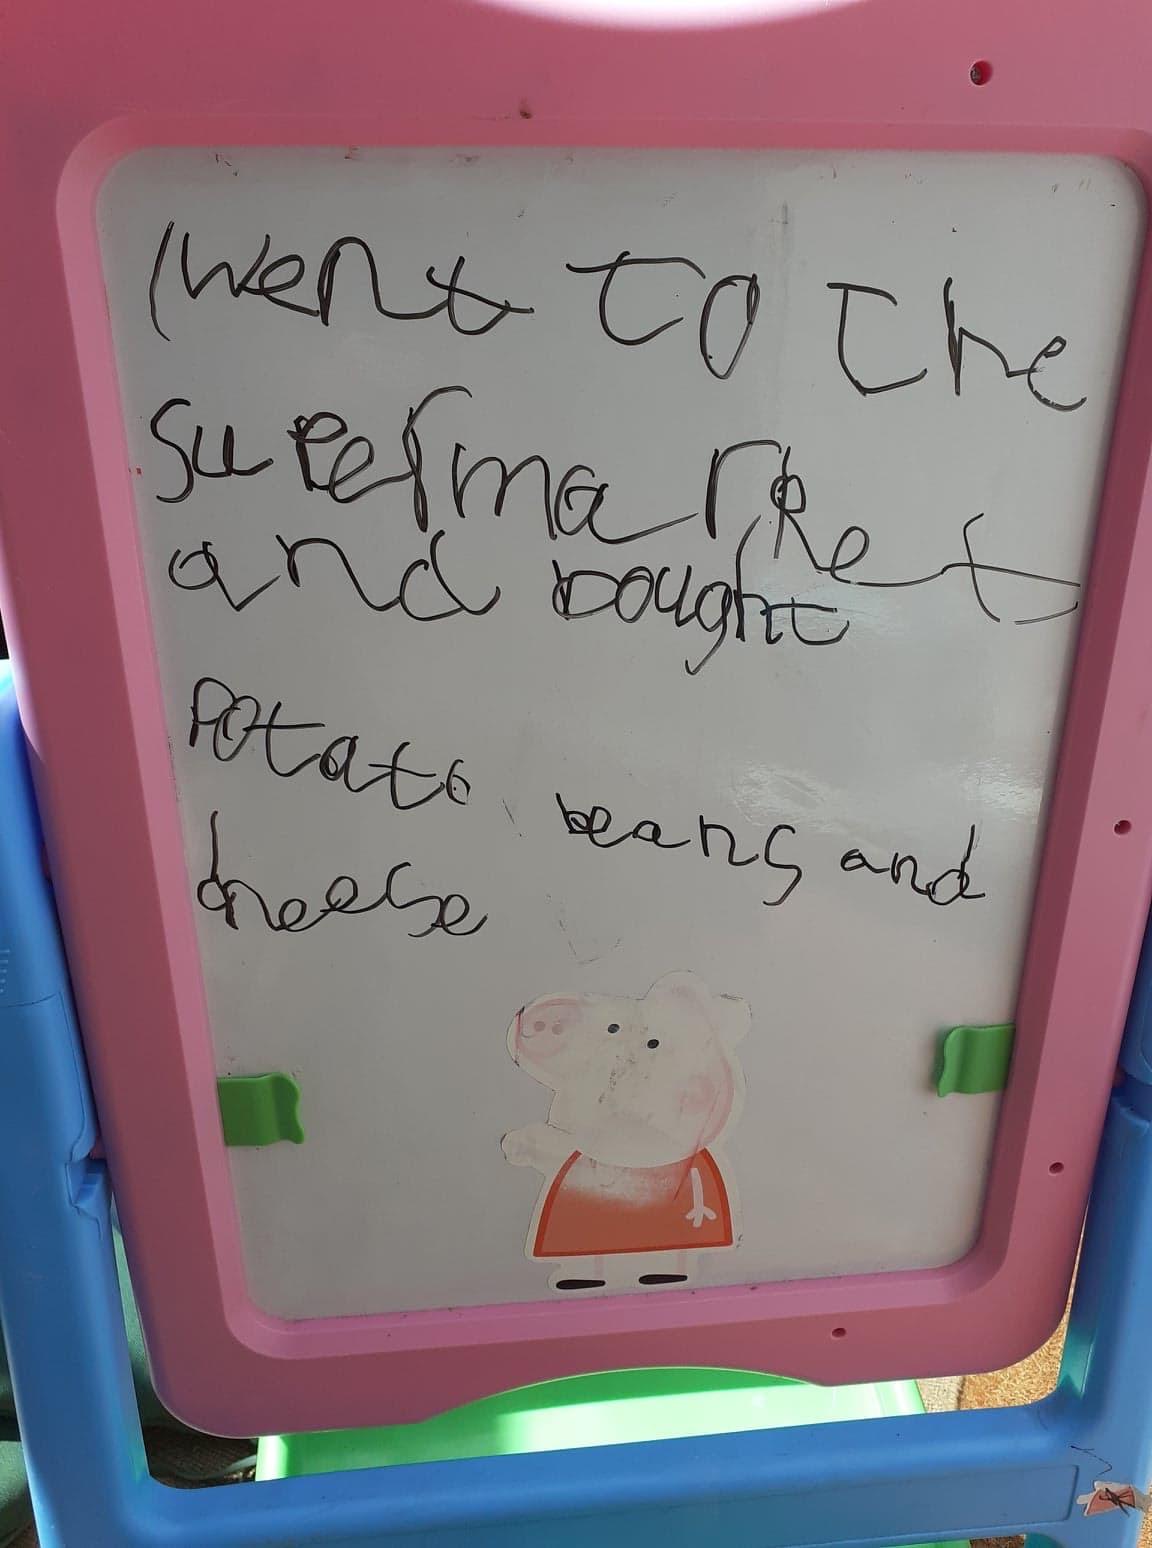 I went to the
supermarket
and bought
potato beans and
cheese